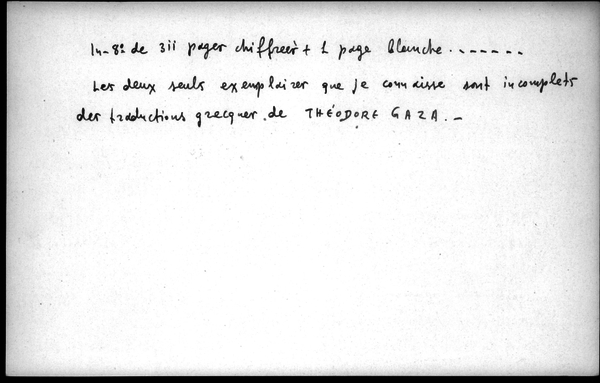 In-8º de 311 pages chiffrées + 1 page blanche . - - - - - -
Les deux seuls exemplaires que je connaisse sont incomplets
des traductions grecques de THÉODORE GAZA. -